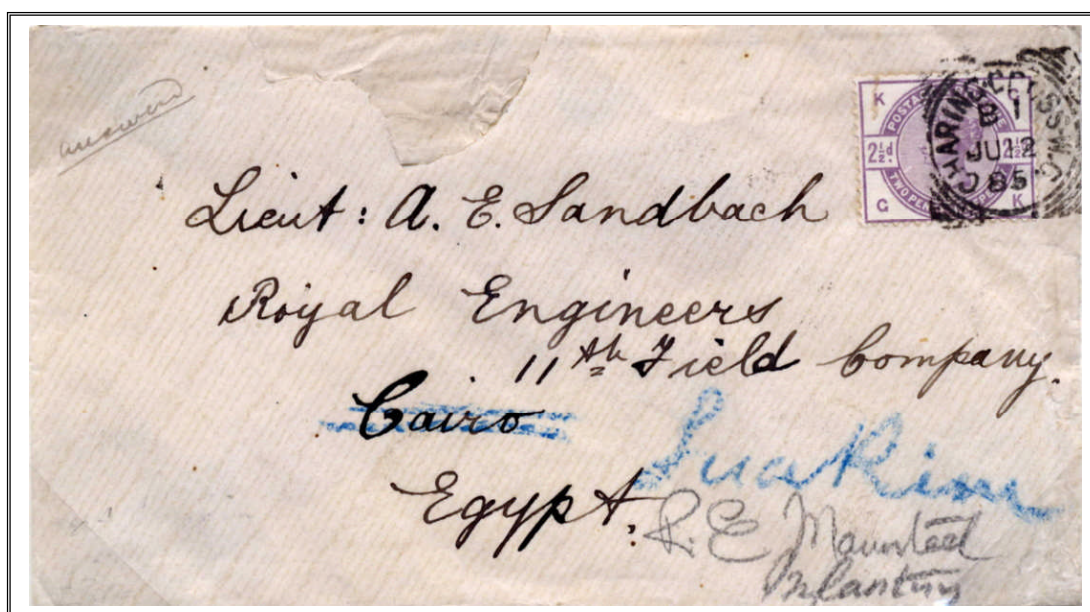 answered
K
POSTAGE
2½d. 2½d.
G K
CHARING CROSS·W.C
B 1
JU 12
85
Lieut: A. E. Sandbach
Royal Engineers
11th Field Company.
Cairo
Suakim
Egypt.
R. E Mounted
Infantry